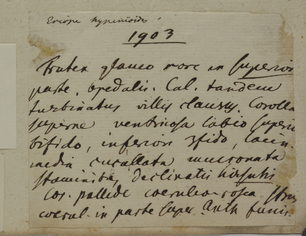 1903
Frutex glauco more in superiori
parte, 
Cal. tandem
turbinatus villis clausus. Corolla
superne ventricosa labio superi
bifido, inferiori 3fido, lacin
media cucullata mucronata
Staminibus declinatis hirsutis
Cor. pallide coerulea rosea
coerul. in parte super. Anth.